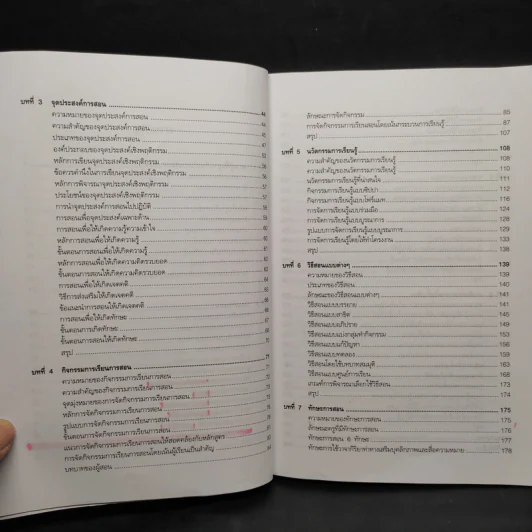 บทที่ 3 จุดประสงค์การสอน
ความหมายของจุดประสงค์การสอน 44
ความสำคัญของจุดประสงค์การสอน
ประเภทของจุดประสงค์การสอน
องค์ประกอบของจุดประสงค์เชิงพฤติกรรม
หลักการเขียนจุดประสงค์เชิงพฤติกรรม
ข้อควรคำนึงในการเขียนจุดประสงค์เชิงพฤติกรรม
หลักการพิจารณาจุดประสงค์เชิงพฤติกรรม
ประโยชน์ของจุดประสงค์เชิงพฤติกรรม
การนำจุดประสงค์การสอนไปปฏิบัติ
การสอนเพื่อจุดประสงค์เฉพาะด้าน
การสอนเพื่อให้เกิดความรู้ความเข้าใจ
หลักการสอนเพื่อให้เกิดความรู้
ขั้นตอนการสอนเพื่อให้เกิดความรู้
หลักการสอนเพื่อให้เกิดความคิดรวบยอด
ขั้นตอนการสอนให้เกิดความคิดรวบยอด
การสอนเพื่อให้เกิดเจตคติ
วิธีการส่งเสริมให้เกิดเจตคติ
ข้อแนะนำการสอนให้เกิดเจตคติ
การสอนเพื่อให้เกิดทักษะ
ขั้นตอนการสอนให้เกิดทักษะ
สรุป
บทที่ 4 กิจกรรมการเรียนการสอน 71
ความหมายของกิจกรรมการเรียนการสอน
ความสำคัญของกิจกรรมการเรียนการสอน
จุดมุ่งหมายของการจัดกิจกรรมการเรียนการสอน
หลักการจัดกิจกรรมการเรียนการสอน
รูปแบบการจัดกิจกรรมการเรียนการสอน
ขั้นตอนการจัดกิจกรรมการเรียนการสอน
แนวการจัดกิจกรรมการเรียนการสอนให้สอดคล้องกับหลักสูตร
การจัดกิจกรรมการเรียนการสอนโดยเน้นผู้เรียนเป็นสำคัญ
บทบาทของผู้สอน
ลักษณะการจัดกิจกรรม 85
การจัดกิจกรรมการเรียนสอนโดยเน้นกระบวนการเรียนรู้ 87
สรุป 107
บทที่ 5 นวัตกรรมการเรียนรู้ 108
ความสำคัญของนวัตกรรมการเรียนรู้ 108
ความสำคัญของนวัตกรรมการเรียนรู้ 110
นวัตกรรมการเรียนรู้ที่น่าสนใจ 111
กิจกรรมการเรียนรู้แบบซิปปา 112
กิจกรรมการเรียนรู้แบบโฟร์แมท 116
การจัดการเรียนรู้แบบร่วมมือ
การจัดการเรียนรู้แบบบูรณาการ
รูปแบบการจัดการเรียนรู้แบบบูรณาการ 129
การจัดการเรียนรู้โดยใช้ทำโครงงาน 133
สรุป 138
บทที่ 6 วิธีสอนแบบต่างๆ 139
ความหมายของวิธีสอน 139
ประเภทของวิธีสอน 140
ลักษณะของวิธีสอนแบบต่างๆ 141
วิธีสอนแบบบรรยาย 141
วิธีสอนแบบสาธิต
วิธีสอนแบบอภิปราย
วิธีสอนแบบแบ่งกลุ่มทำกิจกรรม
วิธีสอนแบบแก้ปัญหา
วิธีสอนแบบทดลอง
วิธีสอนโดยใช้บทบาทสมมุติ
วิธีสอนแบบศูนย์การเรียน
เกณฑ์การพิจารณาเลือกใช้วิธีสอน 173
สรุป 174
บทที่ 7 ทักษะการสอน 175
ความหมายของทักษะการสอน 175
ลักษณะครูที่มีทักษะการสอน 176
ทักษะการสอน 6 ทักษะ 177
ทักษะการใช้วาจากิริยาท่าทางเสริมบุคลิกภาพและสื่อความหมาย 178